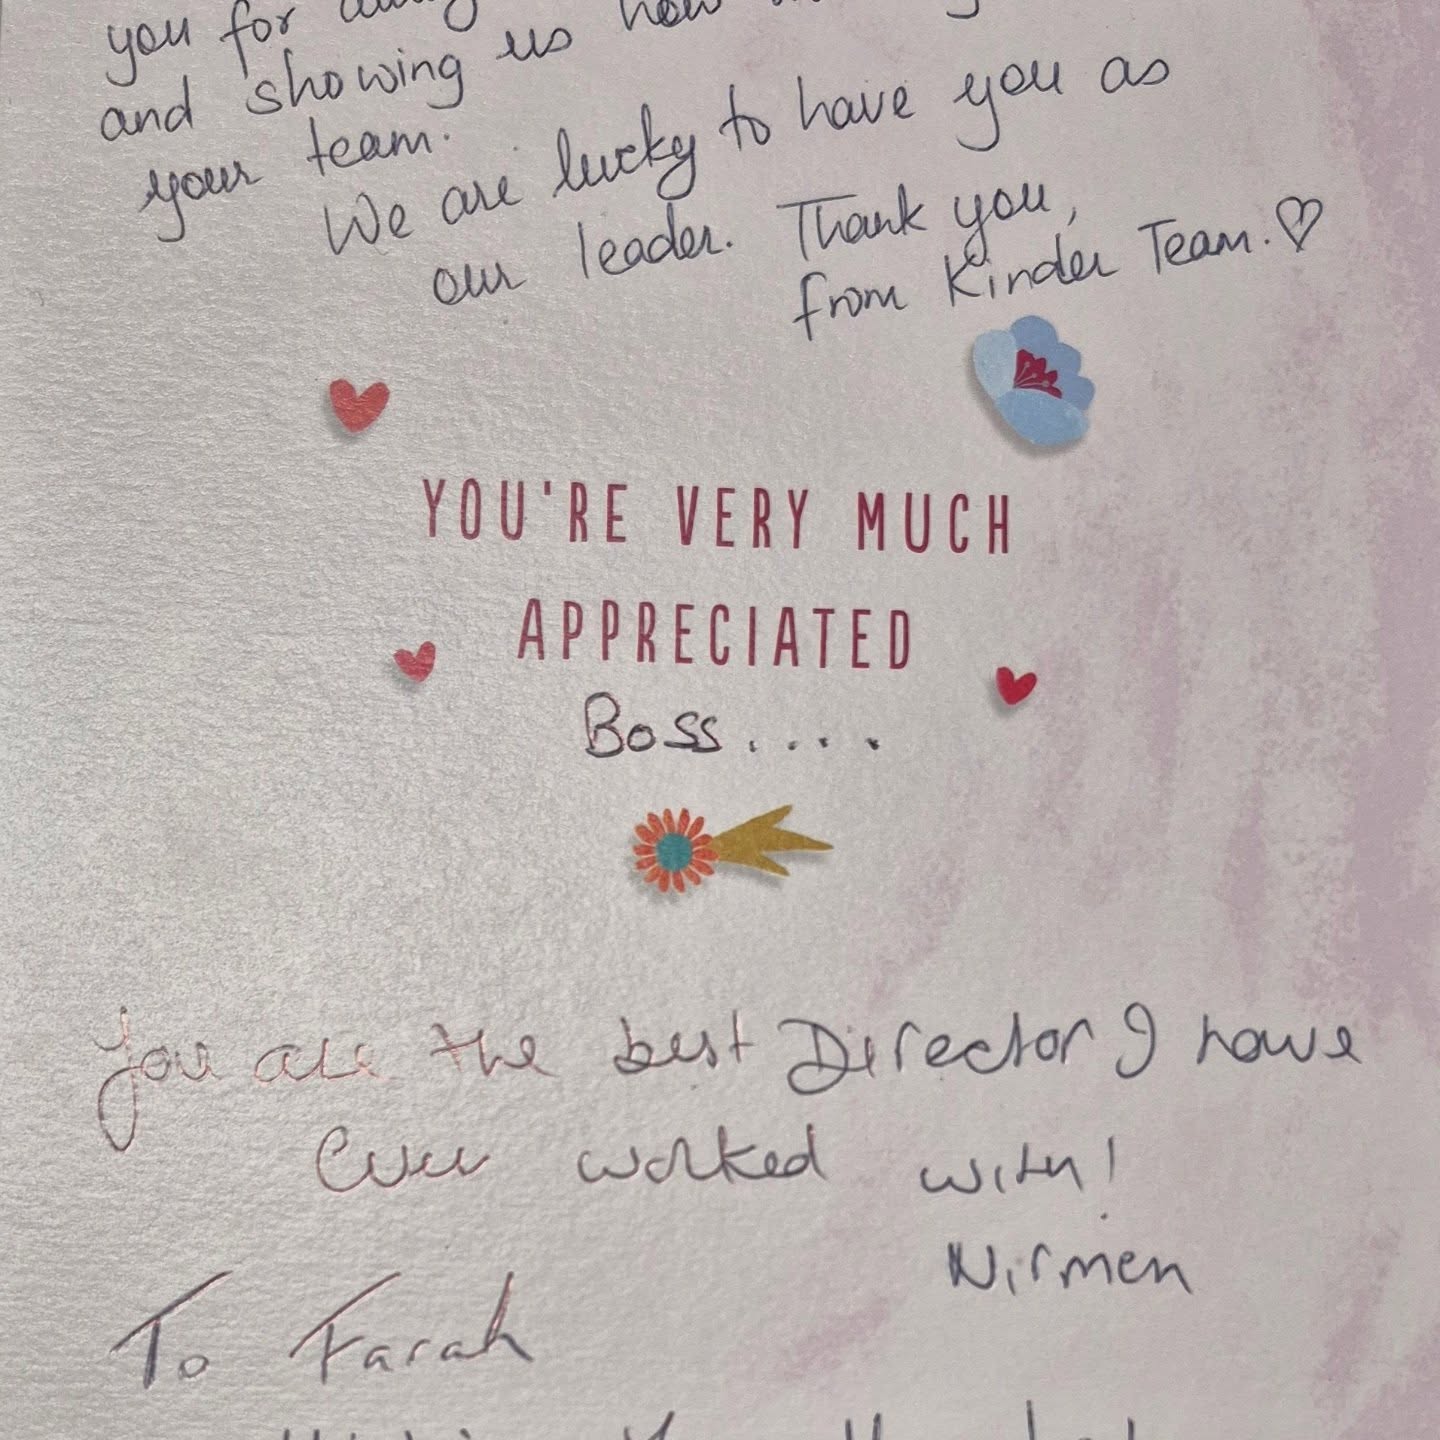 you for
and showing us how
your team.
We are lucky to have you as
our leader. Thank you,
from Kinder Team. ♡
YOU'RE VERY MUCH
APPRECIATED
Boss....
You are the best Director I have
Ever worked with!
Nirmen
To Farah